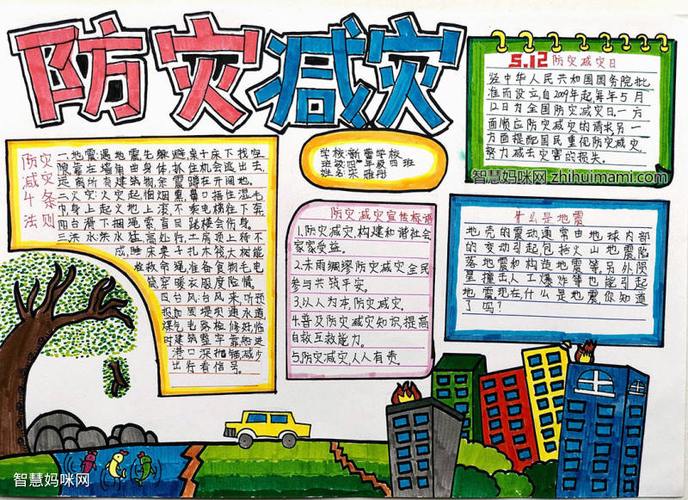 防灾减灾
5.12防灾减灾日
经中华人民共和国国务院批
准而设立自2009年起每年5月
12日为全国防灾减灾日一方
面顺应防灾减灾的请求另一
方面提配国民重化防灾减灾
努力减去灾害的损失。
智慧妈咪网 zhihuimami.com
学校:新营学校
班级:四年级四班
姓名:宋雅丹
防灾
减灾
4条
法则
一、地震遇地震先躲避桌子床下找空
隙靠在墙角曲身体抓住机会逃出去
远离所有建筑物余震蹲在开阔地。
二火灾火灾起怕烟熏鼻口捂住湿毛
巾身上起火地上滚不乘电梯往下奔
四台滑下捆绳索盲目跳楼会伤身。
三洪水洪水猛高处行土房顶上待不
成睡床桌子扎木筏大树能
拴救命绳准备食物毛电
筒穿暖衣服度险情。
四台风台风来听预
报加固堤坝通水道
煤气电路检修处临
时建筑整牢靠船进
港口深抛锚减少
出行看信号。
防灾减灾宣传标语
1.防灾减灾,构建和谐社会
家家受益。
2.未雨绸缪防灾减灾全民
参与共筑平安。
3.以人为本防灾减灾。
4.普及防灾减灾知识提高
自救互救能力。
5.防灾减灾人人有责。
什么是地震
地壳的震动通常由地球内部
的变动引起包括火山地震陷
落地震和构造地震等另外陨
星撞击人工爆炸等也能引起
地震现在什么是地震你知道
了吗?
智慧妈咪网